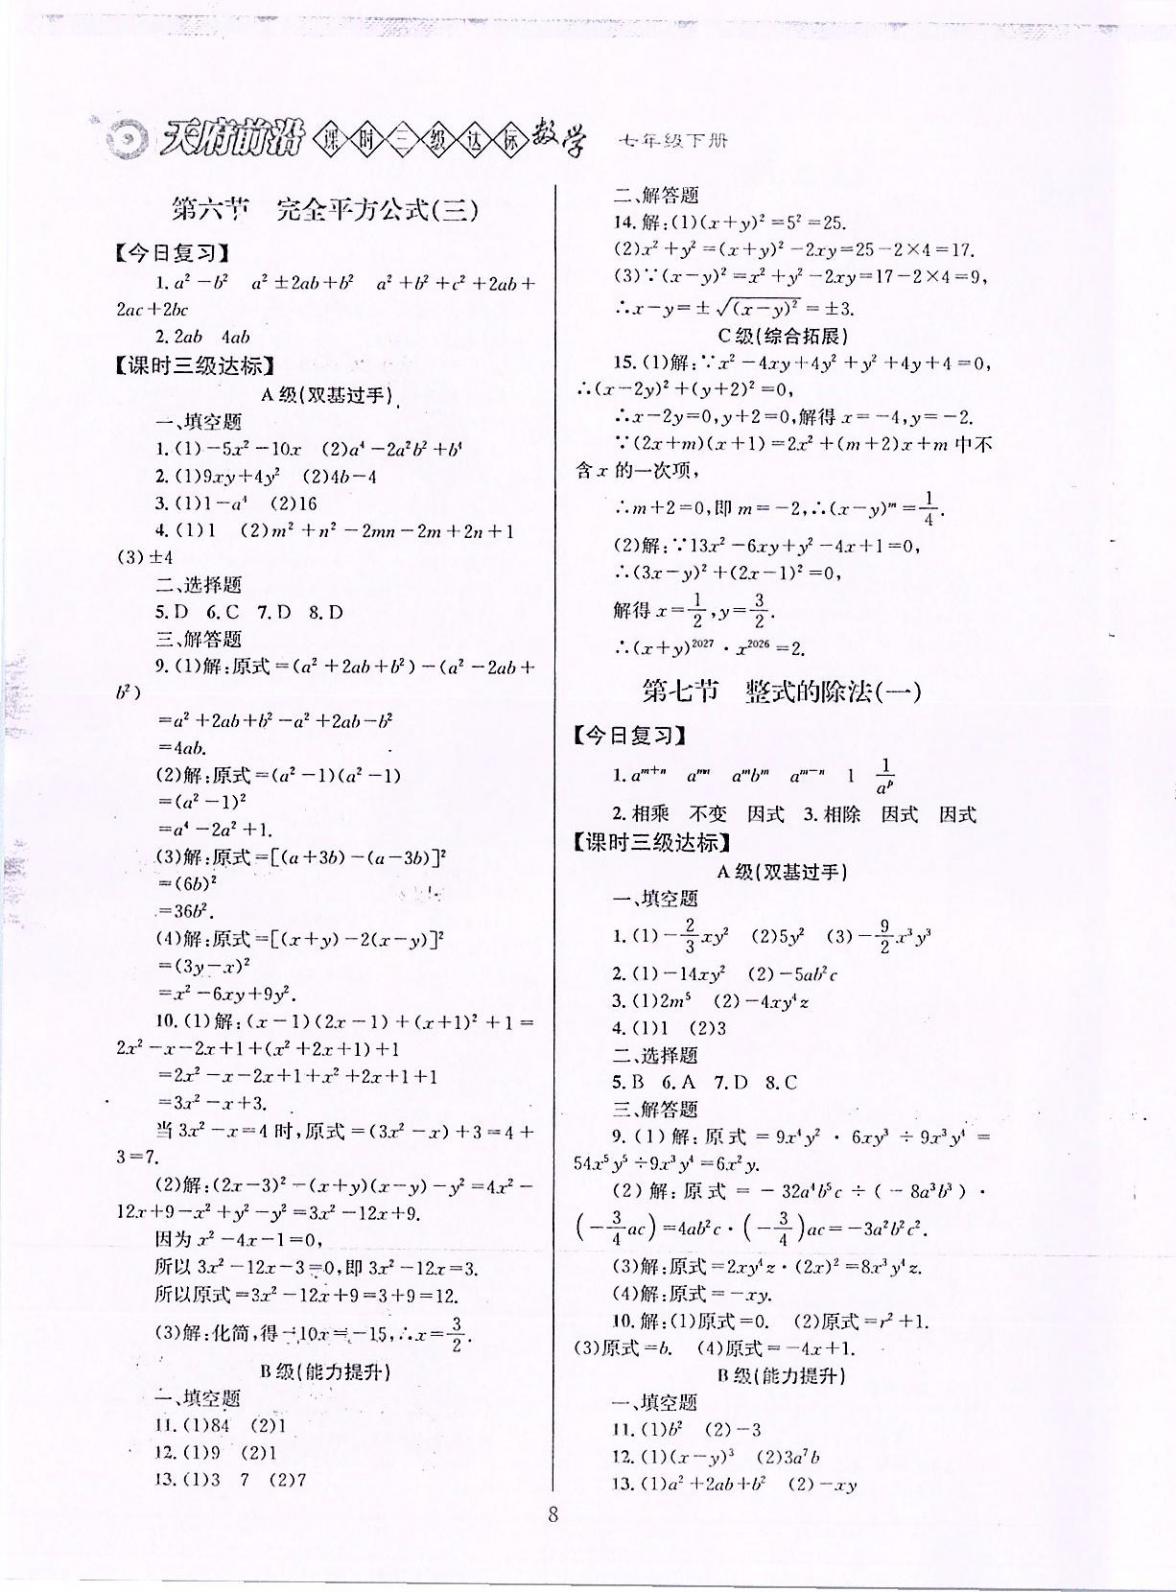 天府前沿 课时三级达标 数学 七年级下册
第六节 完全平方公式(三)
【今日复习】
1. a²-b² a²±2ab+b² a²+b²+c²+2ab+
2ac+2bc
2. 2ab 4ab
【课时三级达标】
A级(双基过手)
一、填空题
1. (1)-5x²-10x (2)a⁴-2a²b²+b⁴
2. (1)9xy+4y² (2)4b-4
3. (1)1-a⁴ (2)16
4. (1)1 (2)m²+n²-2mn-2m+2n+1
(3)±4
二、选择题
5. D 6. C 7. D 8. D
三、解答题
9. (1)解:原式=(a²+2ab+b²)-(a²-2ab+
b²)
=a²+2ab+b²-a²+2ab-b²
=4ab.
(2)解:原式=(a²-1)(a²-1)
=(a²-1)²
=a⁴-2a²+1.
(3)解:原式=[(a+3b)-(a-3b)]²
=(6b)²
=36b².
(4)解:原式=[(x+y)-2(x-y)]²
=(3y-x)²
=x²-6xy+9y².
10. (1)解:(x-1)(2x-1)+(x+1)²+1=
2x²-x-2x+1+(x²+2x+1)+1
=2x²-x-2x+1+x²+2x+1+1
=3x²-x+3.
当3x²-x=4时,原式=(3x²-x)+3=4+
3=7.
(2)解:(2x-3)²-(x+y)(x-y)-y²=4x²-
12x+9-x²+y²-y²=3x²-12x+9.
因为x²-4x-1=0,
所以3x²-12x-3=0,即3x²-12x=3.
所以原式=3x²-12x+9=3+9=12.
(3)解:化简,得-10x=-15,∴x=3/2.
B级(能力提升)
一、填空题
11. (1)84 (2)1
12. (1)9 (2)1
13. (1)3 7 (2)7
二、解答题
14. 解:(1)(x+y)²=5²=25.
(2)x²+y²=(x+y)²-2xy=25-2×4=17.
(3)∵(x-y)²=x²+y²-2xy=17-2×4=9,
∴x-y=±√(x-y)²=±3.
C级(综合拓展)
15. (1)解:∵x²-4xy+4y²+y²+4y+4=0,
∴(x-2y)²+(y+2)²=0,
∴x-2y=0,y+2=0,解得x=-4,y=-2.
∵(2x+m)(x+1)=2x²+(m+2)x+m中不
含x的一次项,
∴m+2=0,即m=-2,∴(x-y)ᵐ=1/4.
(2)解:∵13x²-6xy+y²-4x+1=0,
∴(3x-y)²+(2x-1)²=0,
解得x=1/2,y=3/2.
∴(x+y)²⁰²⁷·x²⁰²⁶=2.
第七节 整式的除法(一)
【今日复习】
1. aᵐ⁺ⁿ aᵐⁿ aᵐbᵐ aᵐ⁻ⁿ 1 1/aᵖ
2. 相乘 不变 因式 3. 相除 因式 因式
【课时三级达标】
A级(双基过手)
一、填空题
1. (1)-2/3xy² (2)5y² (3)-9/2x³y³
2. (1)-14xy² (2)-5ab²c
3. (1)2m⁵ (2)-4xy⁴z
4. (1)1 (2)3
二、选择题
5. B 6. A 7. D 8. C
三、解答题
9. (1)解:原式=9x⁴y²·6xy³÷9x³y⁴=
54x⁵y⁵÷9x³y⁴=6x²y.
(2)解:原式=-32a⁴b⁵c÷(-8a³b³)·
(-3/4ac)=4ab²c·(-3/4)ac=-3a²b²c².
(3)解:原式=2xy⁴z·(2x)²=8x³y⁴z.
(4)解:原式=-xy.
10. 解:(1)原式=0. (2)原式=r²+1.
(3)原式=b. (4)原式=-4x+1.
B级(能力提升)
一、填空题
11. (1)b² (2)-3
12. (1)(x-y)³ (2)3a⁷b
13. (1)a²+2ab+b² (2)-xy
8